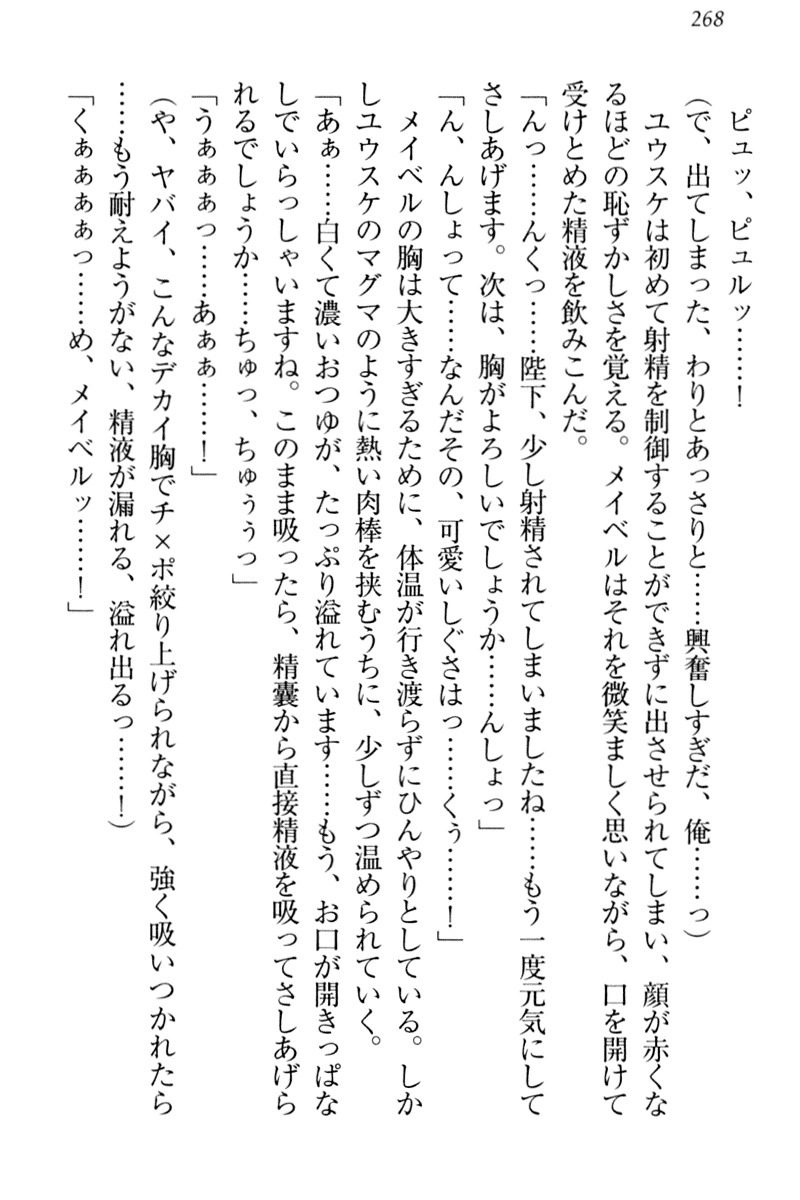 268
ピュッ、ピュルッ……！
(で、出てしまった、わりとあっさりと……興奮しすぎだ、俺……っ)
ユウスケは初めて射精を制御することができずに出させられてしまい、顔が赤くな
るほどの恥ずかしさを覚える。メイベルはそれを微笑ましく思いながら、口を開けて
受けとめた精液を飲みこんだ。
「んっ……んくっ……陛下、少し射精されてしまいましたね……もう一度元気にして
さしあげます。次は、胸がよろしいでしょうか……んしょっ」
「ん、んしょって……なんだその、可愛いしぐさはっ……くぅ……！」
メイベルの胸は大きすぎるために、体温が行き渡らずにひんやりとしている。しか
しユウスケのマグマのように熱い肉棒を挟むうちに、少しずつ温められていく。
「あぁ……白くて濃いおつゆが、たっぷり溢れています……もう、お口が開きっぱな
しでいらっしゃいますね。このまま吸ったら、精嚢から直接精液を吸ってさしあげら
れるでしょうか……ちゅっ、ちゅぅぅっ」
「うぁぁぁっ……あぁぁ……！」
(や、ヤバイ、こんなデカイ胸でチ×ポ絞り上げられながら、強く吸いつかれたら
……もう耐えようがない、精液が漏れる、溢れ出るっ……！)
「くぁぁぁぁっ……め、メイベルッ……！」